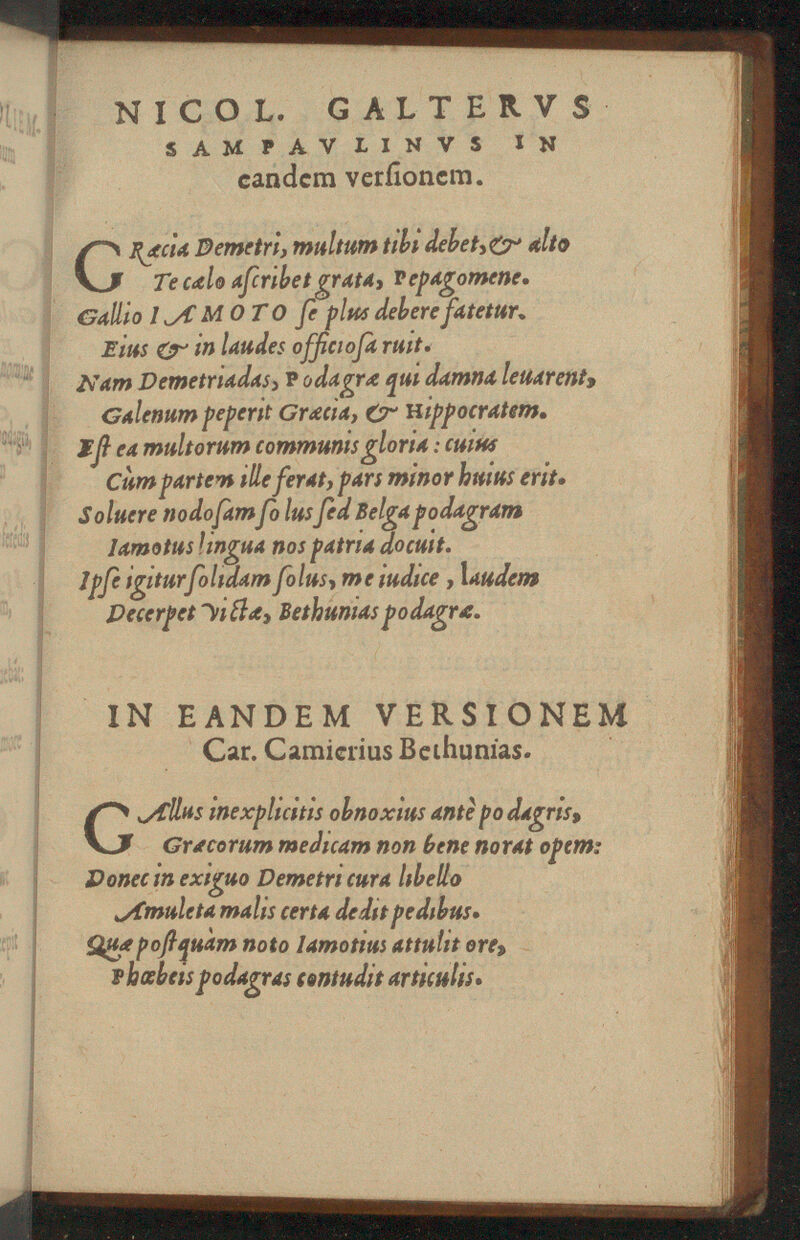 NICOL. GALTERVS
SAMPAVLINVS IN
eandem verſionem.
GRæcia Demetri, multum tibi debet, & alto
Te cælo aſcribet grata, Pepagomene.
Gallio IAMOTO ſe plus debere fatetur.
Eius & in laudes officioſa ruit.
Nam Demetriadas, Podagræ qui damna leuarent,
Galenum peperit Græcia, & Hippocratem.
Eſt ea multorum communis gloria : cuius
Cùm partem ille ferat, pars minor huius erit.
Soluere nodoſam ſolus ſed Belga podagram
Iamotus lingua nos patria docuit.
Ipſe igitur ſolidam ſolus, me iudice , laudem
Decerpet victæ, Bethunias podagræ.
IN EANDEM VERSIONEM
Car. Camierius Bethunias.
GAllus inexplicitis obnoxius antè podagris,
Græcorum medicam non bene norat opem:
Donec in exiguo Demetri cura libello
Amuleta malis certa dedit pedibus.
Quæ poſtquàm noto Iamotius attulit ore,
Phœbeis podagras contudit articulis.